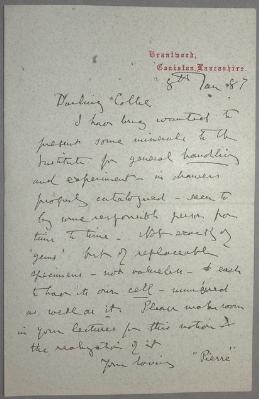 Brantwood,
Coniston, Lancashire.
8th Jan 87
Darling "Collie"
I have long wanted to
present some minerals to the
Institute for general handling
and experiment - in drawers
properly catalogued - seen to
by some responsible person from
time to time. Not exactly of
"gems" but of replaceable
specimens - not valueless - & each
to have its own cell - numbered
as well as it. Please make room
in your lectures for this notion &
the realization of it
Your loving "Pierre"